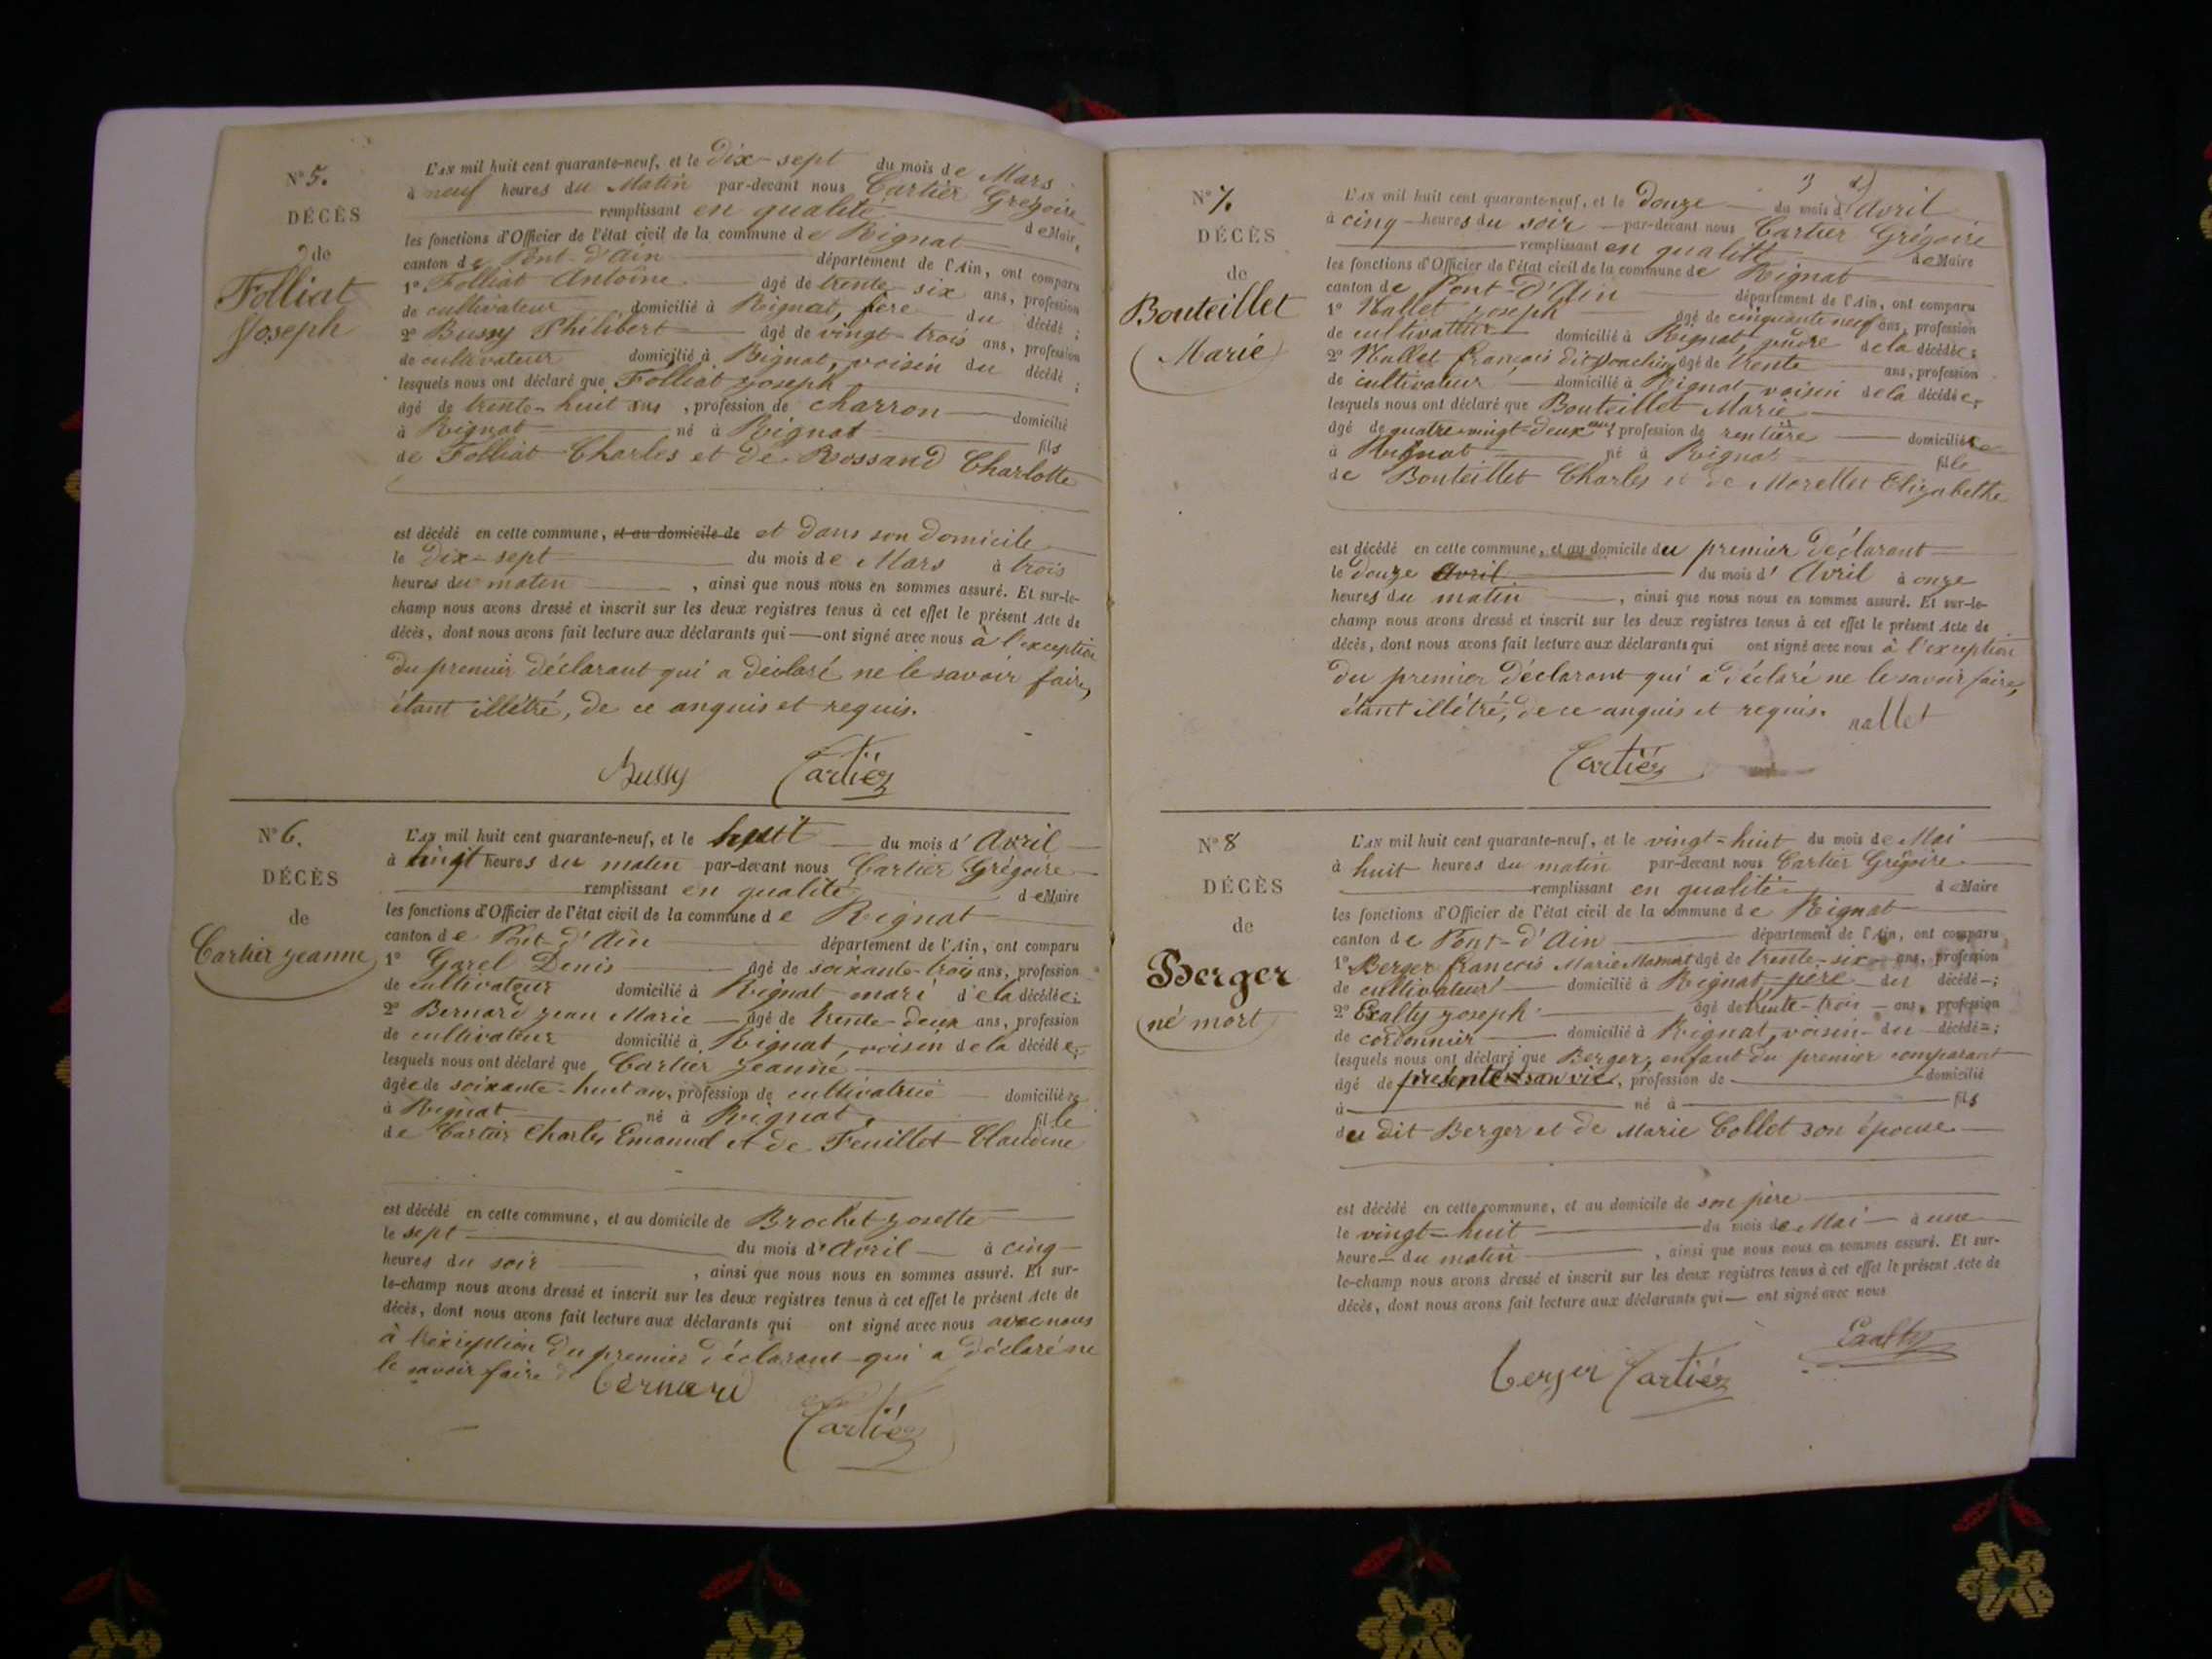 N° 5.
DÉCÈS
de
Folliat
Joseph
L'AN mil huit cent quarante-neuf, et le Dix-sept du mois de Mars
à neuf heures du Matin par-devant nous Cartier Grégoire
remplissant en qualité de Maire
les fonctions d'Officier de l'état civil de la commune de Rignat
canton de Pont-d'Ain département de l'Ain, ont comparu
1° Folliat Antoine âgé de trente six ans, profession
de cultivateur domicilié à Rignat, frère du décédé ;
2° Bussy Philibert âgé de vingt-trois ans, profession
de cultivateur domicilié à Rignat, voisin du décédé ;
lesquels nous ont déclaré que Folliat Joseph
âgé de trente-huit ans, profession de charron domicilié
à Rignat né à Rignat fils
de Folliat Charles et de Rossand Charlotte
est décédé en cette commune, et au domicile de et dans son domicile
le Dix-sept du mois de Mars à trois
heures du matin, ainsi que nous nous en sommes assuré. Et sur-le-
champ nous avons dressé et inscrit sur les deux registres tenus à cet effet le présent Acte de
décès, dont nous avons fait lecture aux déclarants qui ont signé avec nous à l'exception
du premier déclarant qui a déclaré ne le savoir faire,
étant illétré, de ce anquis et requis.
Bussy Cartier
N° 6.
DÉCÈS
de
Cartier Jeanne
L'AN mil huit cent quarante-neuf, et le huit du mois d'Avril
à heures du matin par-devant nous Cartier Grégoire
remplissant en qualité de Maire
les fonctions d'Officier de l'état civil de la commune de Rignat
canton de Pont-d'Ain département de l'Ain, ont comparu
1° Garel Denis âgé de soixante-trois ans, profession
de cultivateur domicilié à Rignat mari de la décédée ;
2° Bernard Jean Marie âgé de trente-deux ans, profession
de cultivateur domicilié à Rignat, voisin de la décédée ;
lesquels nous ont déclaré que Cartier Jeanne
âgée de soixante-huit ans, profession de cultivatrice domiciliée
à Rignat né à Rignat, fille
de Cartier Charles Emanuel et de Feuillet Claudine
est décédé en cette commune, et au domicile de Brochet Josette
le sept du mois d'Avril à cinq
heures du soir, ainsi que nous nous en sommes assuré. Et sur-
le-champ nous avons dressé et inscrit sur les deux registres tenus à cet effet le présent Acte de
décès, dont nous avons fait lecture aux déclarants qui ont signé avec nous avec nous
à l'exception du premier déclarant qui a déclaré ne
le savoir faire
bernard
Cartier
3
N° 7.
DÉCÈS
de
Bouteillet
Marie
L'AN mil huit cent quarante-neuf, et le Douze du mois d'Avril
à cinq heures du soir par-devant nous Cartier Grégoire
remplissant en qualité de Maire
les fonctions d'Officier de l'état civil de la commune de Rignat
canton de Pont-D'Ain département de l'Ain, ont comparu
1° Nallet Joseph âgé de cinquante neuf ans, profession
de cultivateur domicilié à Rignat, gendre de la décédée ;
2° Nallet François dit Joachim âgé de trente ans, profession
de cultivateur domicilié à Rignat voisin de la décédée ;
lesquels nous ont déclaré que Bouteillet Marie
âgé de quatre-vingt-deux ans, profession de rentière domiciliée
à Rignat né à Rignat fille
de Bouteillet Charles et de Morellet Elizabethe
est décédé en cette commune, et au domicile du premier déclarant
le douze avril du mois d'Avril à onze
heures du matin, ainsi que nous nous en sommes assuré. Et sur-le-
champ nous avons dressé et inscrit sur les deux registres tenus à cet effet le présent Acte de
décès, dont nous avons fait lecture aux déclarants qui ont signé avec nous à l'exception
du premier déclarant qui a déclaré ne le savoir faire,
étant illétré, de ce anquis et requis. nallet
Cartier
N° 8
DÉCÈS
de
Berger
né mort
L'AN mil huit cent quarante-neuf, et le vingt-huit du mois de Mai
à huit heures du matin par-devant nous Cartier Grégoire
remplissant en qualité de Maire
les fonctions d'Officier de l'état civil de la commune de Rignat
canton de Pont-d'Ain département de l'Ain, ont comparu
1° Berger François Marie Mamert âgé de trente-six ans, profession
de cultivateur domicilié à Rignat, père du décédé ;
2° Exalty Joseph âgé de trente-trois ans, profession
de cordonnier domicilié à Rignat, voisin du décédé ;
lesquels nous ont déclaré que Berger, enfant du premier comparant
âgé de présenté san vie, profession de domicilié
à né à fils
du dit Berger et de Marie Collet son épouse
est décédé en cette commune, et au domicile de son père
le vingt-huit du mois de Mai à une
heure du matin, ainsi que nous nous en sommes assuré. Et sur-
le-champ nous avons dressé et inscrit sur les deux registres tenus à cet effet le présent Acte de
décès, dont nous avons fait lecture aux déclarants qui ont signé avec nous
Exalty
berger Cartier